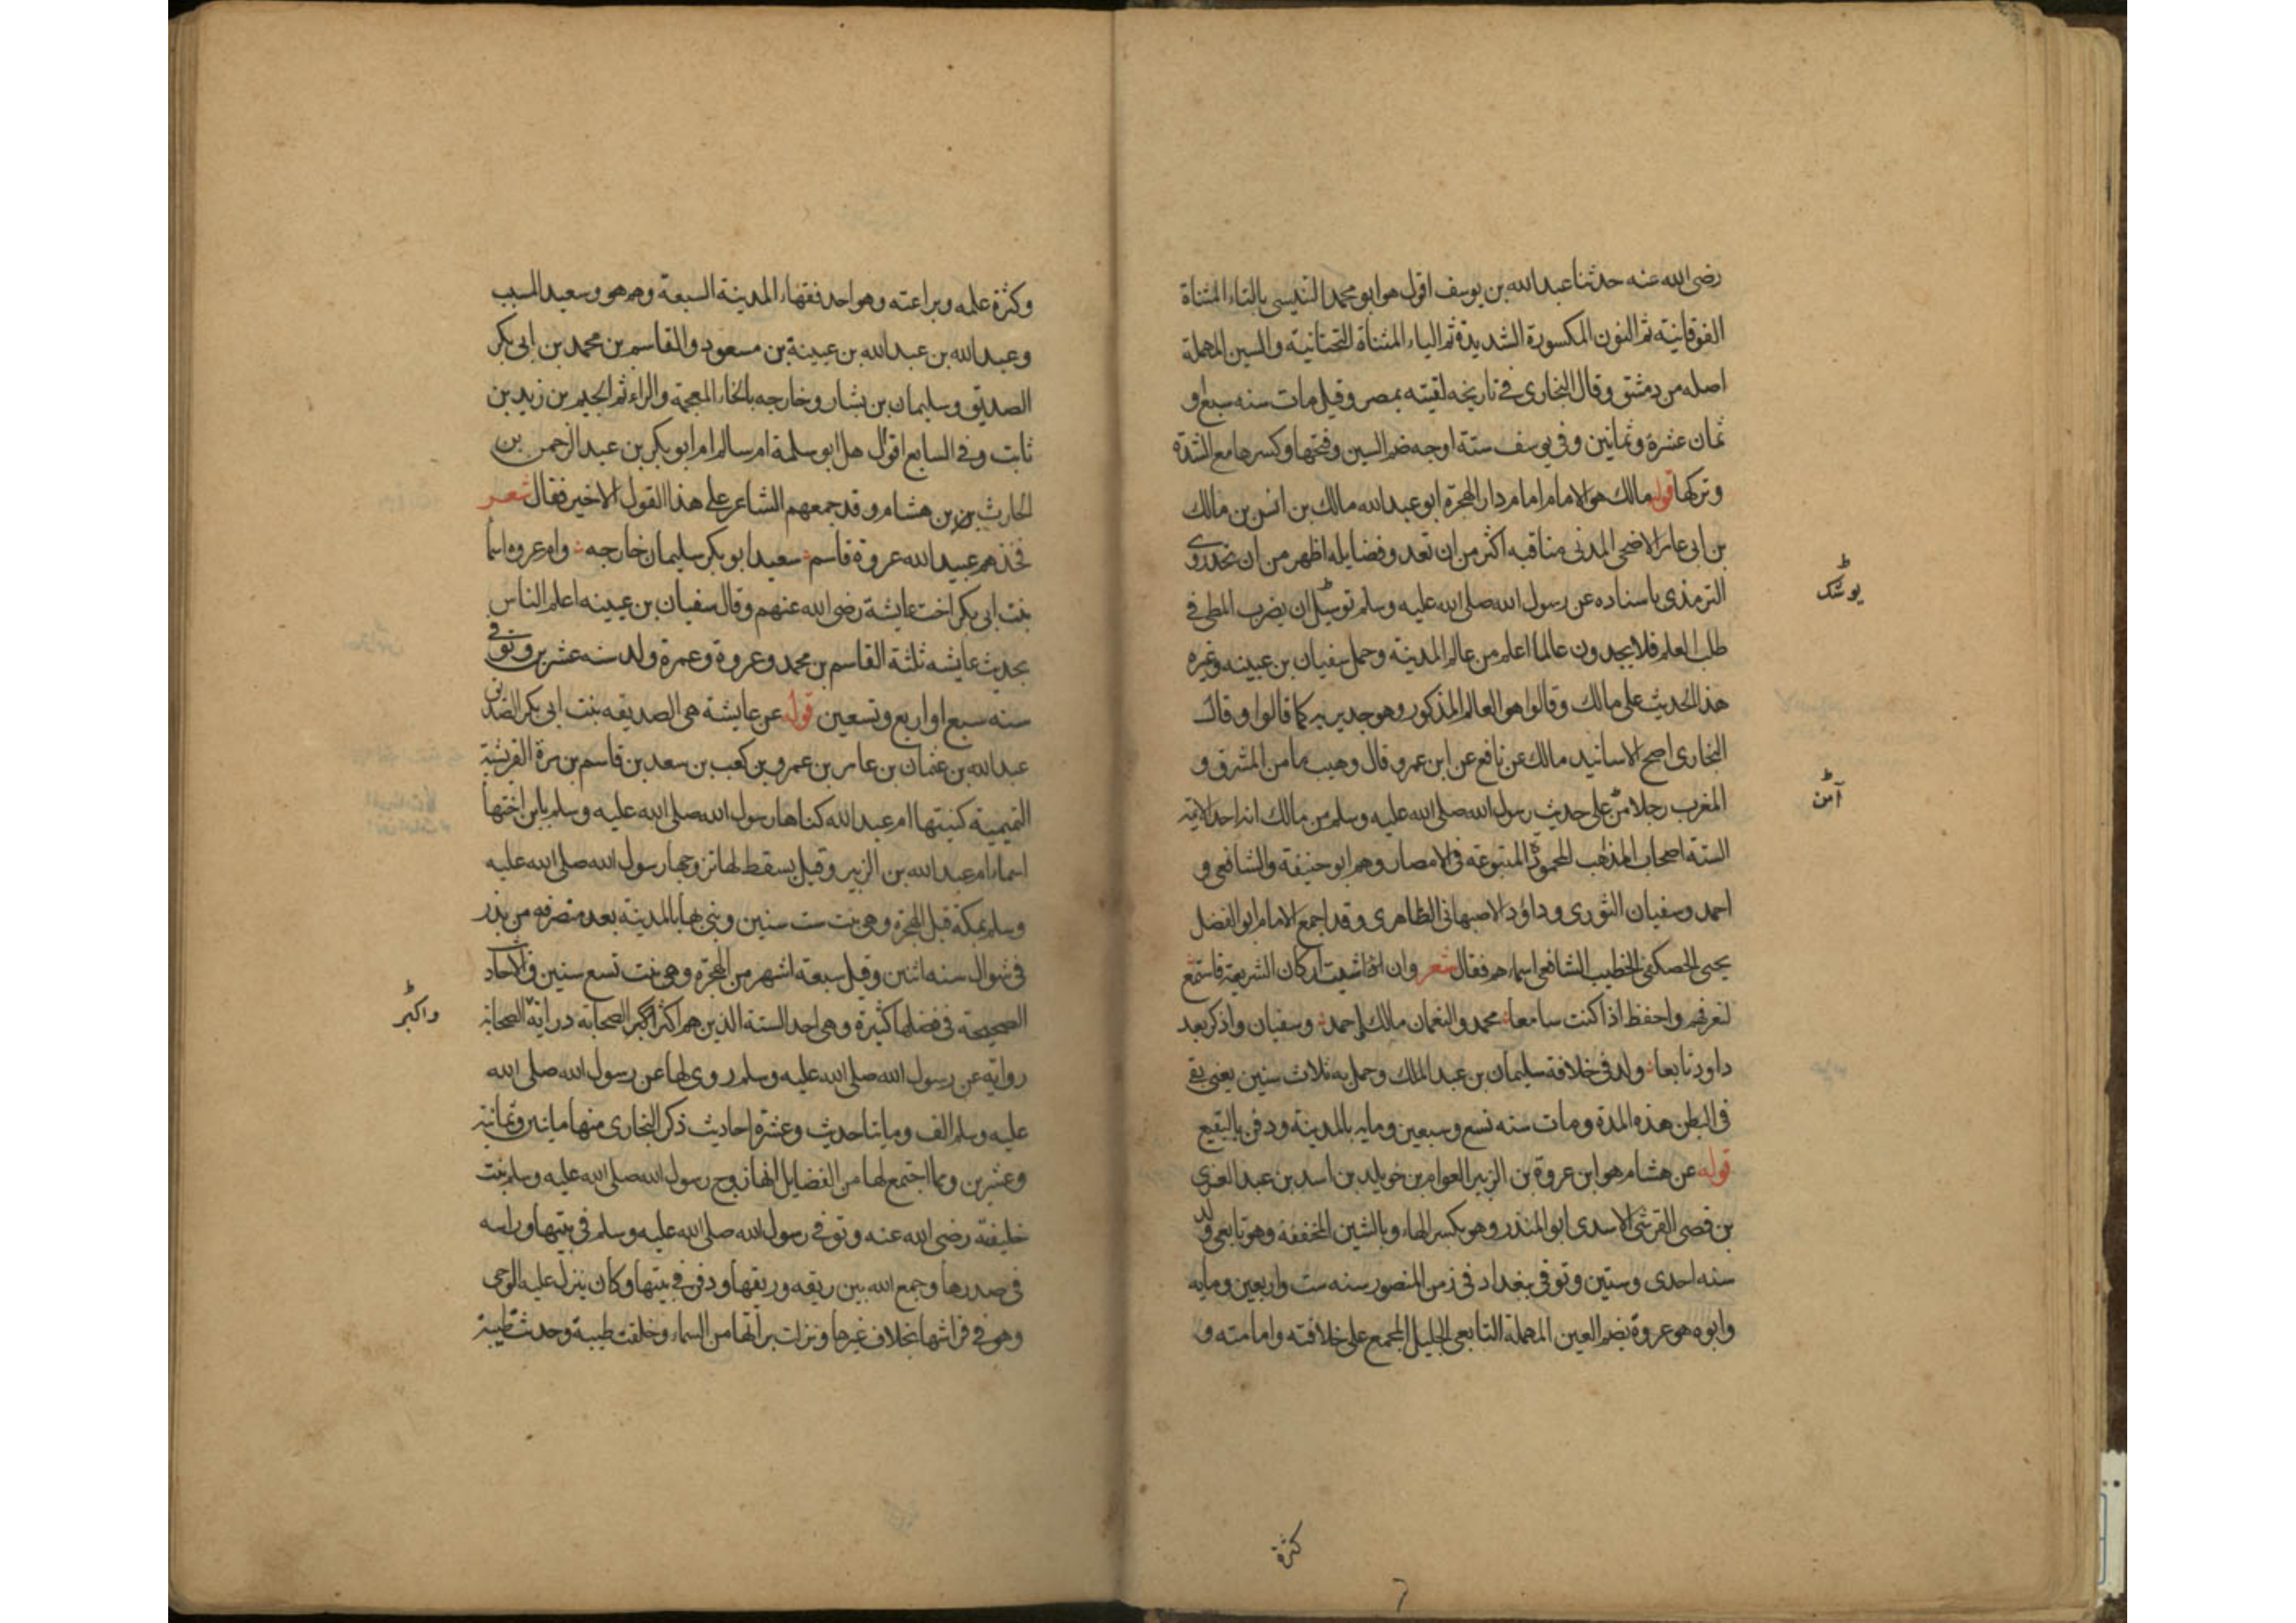 رضى الله عنه حدثنا عبد الله بن يوسف اقول هو ابو محمد التنيسى بالتاء المثناة
الفوقانية ثم النون المكسورة الشديدة ثم الياء المثناة التحتانية والسين المهملة
اصله من دمشق وقال البخارى فى تاريخه لقيته بمصر وقيل مات سنه سبع او
ثمان عشرة وثمانين وفى يوسف ستة اوجه ضم السين وفتحها وكسرها مع الشدة
وتركها قوله مالك هو الامام امام دار الهجرة ابو عبد الله مالك بن انس بن مالك
بن ابى عامر الاضحى المدنى مناقبه اكثر من ان تعد وفضايله اظهر من ان تحد روى
الترمذى باسناده عن رسول الله صلى الله عليه وسلم ان يضرب المطى فى
يوشك
طلب العلم فلا يجدون عالما اعلم من عالم المدينه وحمل سفيان بن عيينه وغيره
هذا الحديث على مالك وقالوا هو العالم المذكور وهو جدير به كما قالوا وقال
البخارى اصح الاسانيد مالك عن نافع عن ابن عمر وقال وهيب ما من المشرق و
المغرب رجلا من على حديث رسول الله صلى الله عليه وسلم من مالك انه احد الايمة
آمن
الستة اصحاب المذاهب المتبوعة فى الامصار وهم ابو حنيفة والشافعى و
احمد وسفيان الثورى وداؤد الاصبهانى الظاهرى وقد اجمع الامام ابو الفضل
يحيى الحصكفى الخطيب الشافعى اسماءهم فقال شعر وان شيت اركان الشريعة فاستمع
لتعرفهم واحفظ اذا كنت سامعا محمد والنعمان مالك احمد وسفيان واذكر بعد
داود تابعا ولد فى خلافة سليمان بن عبد الملك وحمل به ثلاث سنين يعنى بقى
فى البطن هذه المدة ومات سنه تسع وسبعين ومايه بالمدينة ودفن بالبقيع
قوله عن هشام هو ابن عروة بن الزبير العوام بن خويلد بن اسد بن عبد العزى
بن قصى القرشى الاسدى ابو المنذر وهو بكسر الهاء وبالشين المخففة وهو تابعى ولد
سنه احدى وستين وتوفى ببغداد فى زمن المنصور سنه ست واربعين ومايه
وابوه هو عروة بضم العين المهملة التابعى الجليل المجمع على خلافته وامامته و
كثرة
وكثرة علمه وبراعته وهو احد فقهاء المدينة السبعة وهم هو وسعيد المسيب
وعبد الله بن عبد الله بن عيينة بن مسعود والقاسم بن محمد بن ابى بكر
الصديق وسليمان بن بشار وخارجه بالخاء المعجمة والراء ثم الجيم بن زيد بن
ثابت وفى السابع اقوال هل ابو سلمة ام سالم ام ابو بكر بن عبد الرحمن بن
الحارث بن هشام وقد جمعهم الشاعر على هذا القول الاخير فقال شعر
فخذهم عبيد الله عروة قاسم سعيد ابو بكر سليمان خارجه وام عروه اسما
بنت ابى بكر اخت عايشة رضى الله عنهم وقال سفيان بن عيينه اعلم الناس
بحديث عايشه ثلثة القاسم بن محمد وعروة وعمرة ولد سنه عشرين وتوفى
سنه سبع او اربع وتسعين قوله عن عايشة هى الصديقه بنت ابى بكر الصديق
عبد الله بن عثمان بن عامر بن عمرو بن كعب بن سعد بن قاسم بن مرة القرشية
التميمية كنيتها ام عبد الله كناها رسول الله صلى الله عليه وسلم بابن اختها
اسماء ام عبد الله بن الزبير وقيل بسقط لها تزوجها رسول الله صلى الله عليه
وسلم بمكة قبل الهجرة وهى بنت ست سنين وبنى بها بالمدينه بعد منصرفه من بدر
فى شوال سنه اثنين وقيل سبعة اشهر من الهجرة وهى بنت تسع سنين والاحاد
الصحيحة فى فضلها كثيرة وهى احد الستة الذين هم اكثر الصحابه
واكبر
رواية عن رسول الله صلى الله عليه وسلم روى لها عن رسول الله صلى الله
عليه وسلم الف ومايتا حديث وعشرة احاديث ذكر البخارى منها مايتين وثمانية
وعشرين ومما اجتمع لها من الفضايل انها زوج رسول الله صلى الله عليه وسلم بنت
خليفته رضى الله عنه وتوفى رسول الله صلى الله عليه وسلم فى بيتها وراسه
فى صدرها وجمع الله بين ريقه وريقها ودفن فى بيتها وكان ينزل عليه الوحى
وهو فى فراشها بخلاف غيرها ونزلت برأتها من السماء وخلقت طيبة وحدث طيبة